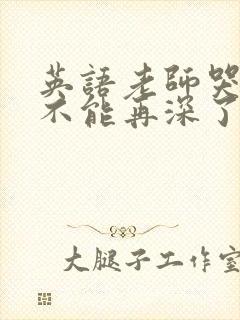 英語老師哭
不能再深了
大腿子工作室